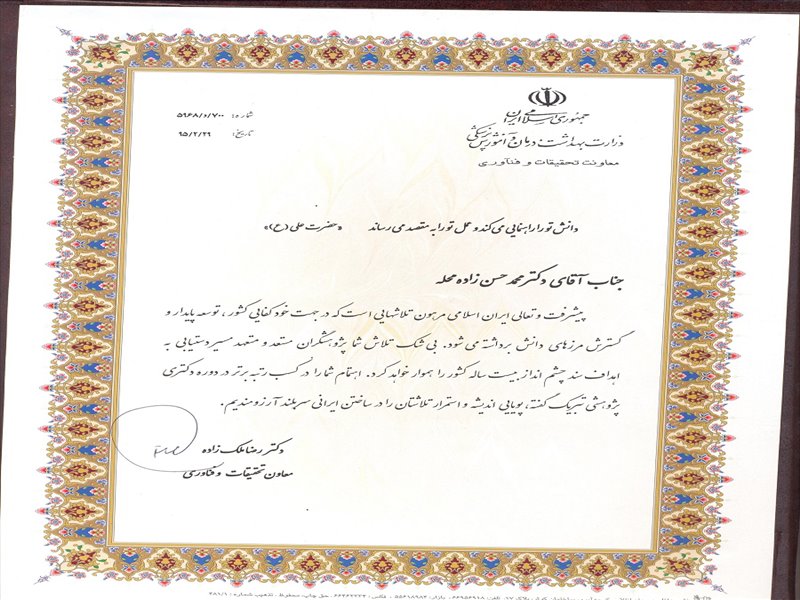 جمهوری اسلامی ایران
وزارت بهداشت درمان و آموزش پزشکی
معاونت تحقیقات و فناوری
شماره: ۵۹۶۸/د/۷۰۰
تاریخ: ۹۵/۲/۲۹
دانش تو را راهنمایی می کند و عمل تو را به مقصد می رساند «حضرت علی (ع)»
جناب آقای دکتر محمد حسن زاده محله
پیشرفت و تعالی ایران اسلامی مرهون تلاشهایی است که در جهت خودکفایی کشور، توسعه پایدار و
گسترش مرزهای دانش برداشته می شود. بی شک تلاش شما پژوهشگران مستعد و متعهد مسیر دستیابی به
اهداف سند چشم انداز بیست ساله کشور را هموار خواهد کرد. اهتمام شما را در کسب رتبه برتر در دوره دکتری
پژوهشی تبریک گفته، پویایی اندیشه و استمرار تلاشتان را در ساختن ایرانی سربلند آرزومندیم.
دکتر رضا ملک زاده
معاون تحقیقات و فناوری